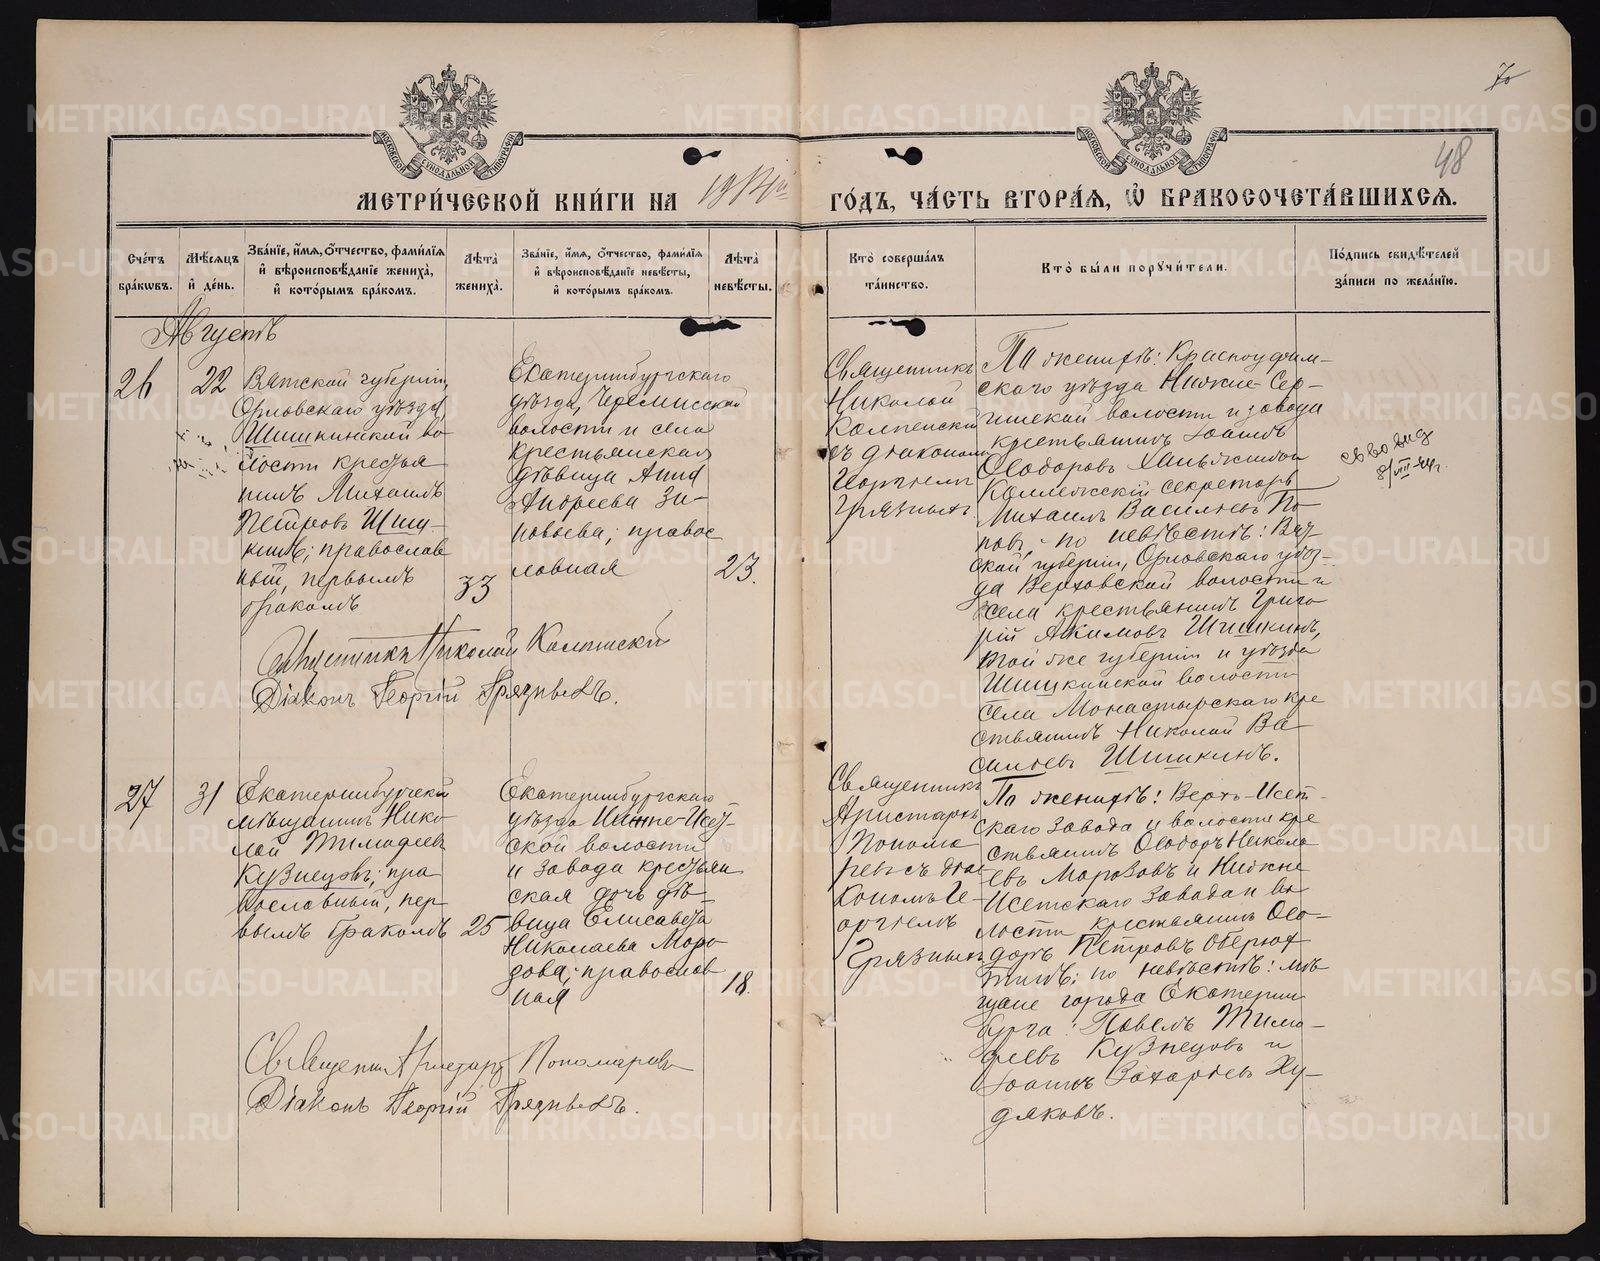 70
48
МОСКОВСКОЙ СѴНОДАЛЬНОЙ ТИПОГРАФІИ
МОСКОВСКОЙ СѴНОДАЛЬНОЙ ТИПОГРАФІИ
МЕТРИ́ЧЕСКОЙ КНИ́ГИ НА
ГО́ДЪ, ЧА́СТЬ ВТОРА́Я, Ѽ БРАКОСОЧЕТА́ВШИХСЯ.
Сче́тъ
бра́кѡвъ.
Мѣ́сяцъ
и҆ де́нь.
Зва́нїе, и҆́мя, ѻ҆́тчество, фами́лїя
и҆ вѣроисповѣ́данїе жениха̀,
и҆ кото́рымъ бра́комъ.
Лѣ́та
жениха̀.
Зва́нїе, и҆́мя, ѻ҆́тчество, фами́лїя
и҆ вѣроисповѣ́данїе невѣ́сты,
и҆ кото́рымъ бра́комъ.
Лѣ́та
невѣ́сты.
Кто̀ соверша́лъ
та́инство.
Кто̀ бы́ли порꙋчи́тели.
По́дпись свидѣ́телей
за́писи по жела́нїю.
Августъ
26
22
Вятской губерніи,
Орловскаго уѣзда
Шишкинской во-
лости крестья
нинъ Михаилъ
Петровъ Шиш-
кинъ; православ
ный, первымъ
бракомъ
33
Екатеринбургскаго
уѣзда, Черемисской
волости и села
крестьянская
дѣвица Анна
Андреева Зи-
новьева; правос
лавная
23.
Священникъ
Николай
съ діакономъ
Георгіемъ
Грязныхъ
По женихѣ: Красноуфим-
скаго уѣзда Нижне-Сер-
гинской волости и завода
крестьянинъ Іоаннъ
Ѳеодоровъ
Коллежскій Секретарь
Михаилъ Васильевъ По-
повъ, по невѣстѣ: Вят-
ской губерніи, Орловскаго уѣз-
да Верховской волости и
села крестьянинъ Григо
рій Акимовъ Шишкинъ,
той же губерніи и уѣзда
Шишкинской волости
села Монастырскаго кре
стьянинъ Николай Ва
сильевъ Шишкинъ.
Священникъ Николай
Діаконъ Георгій Грязныхъ.
27
31
Екатеринбургскій
мѣщанинъ Нико-
лай Тимофеевъ
Кузнецовъ; пра
вославный, пер
вымъ бракомъ
25
Екатеринбургскаго
уѣзда Нижне-Исет-
ской волости
и завода крестьян
ская дочь дѣ-
вица Елисавета
Николаева Моро
зова; православ
ная
18.
Священникъ
Аристархъ
Понома
ревъ съ діа
кономъ Ге-
оргіемъ
Грязныхъ
По женихѣ: Верхъ-Исет-
скаго завода и волости кре
стьянинъ Ѳеодоръ Никола
евъ Морозовъ и Нижне
Исетскаго завода и во
лости крестьянинъ Ѳео-
доръ Петровъ Оберюх
тинъ; по невѣстѣ: мѣ
щане города Екатерин
бурга: Павелъ Тимо-
феевъ Кузнецовъ и
Іоаннъ Захаровъ Ху-
дяковъ.
Священникъ Аристархъ Пономаревъ
Діаконъ Георгій Грязныхъ.